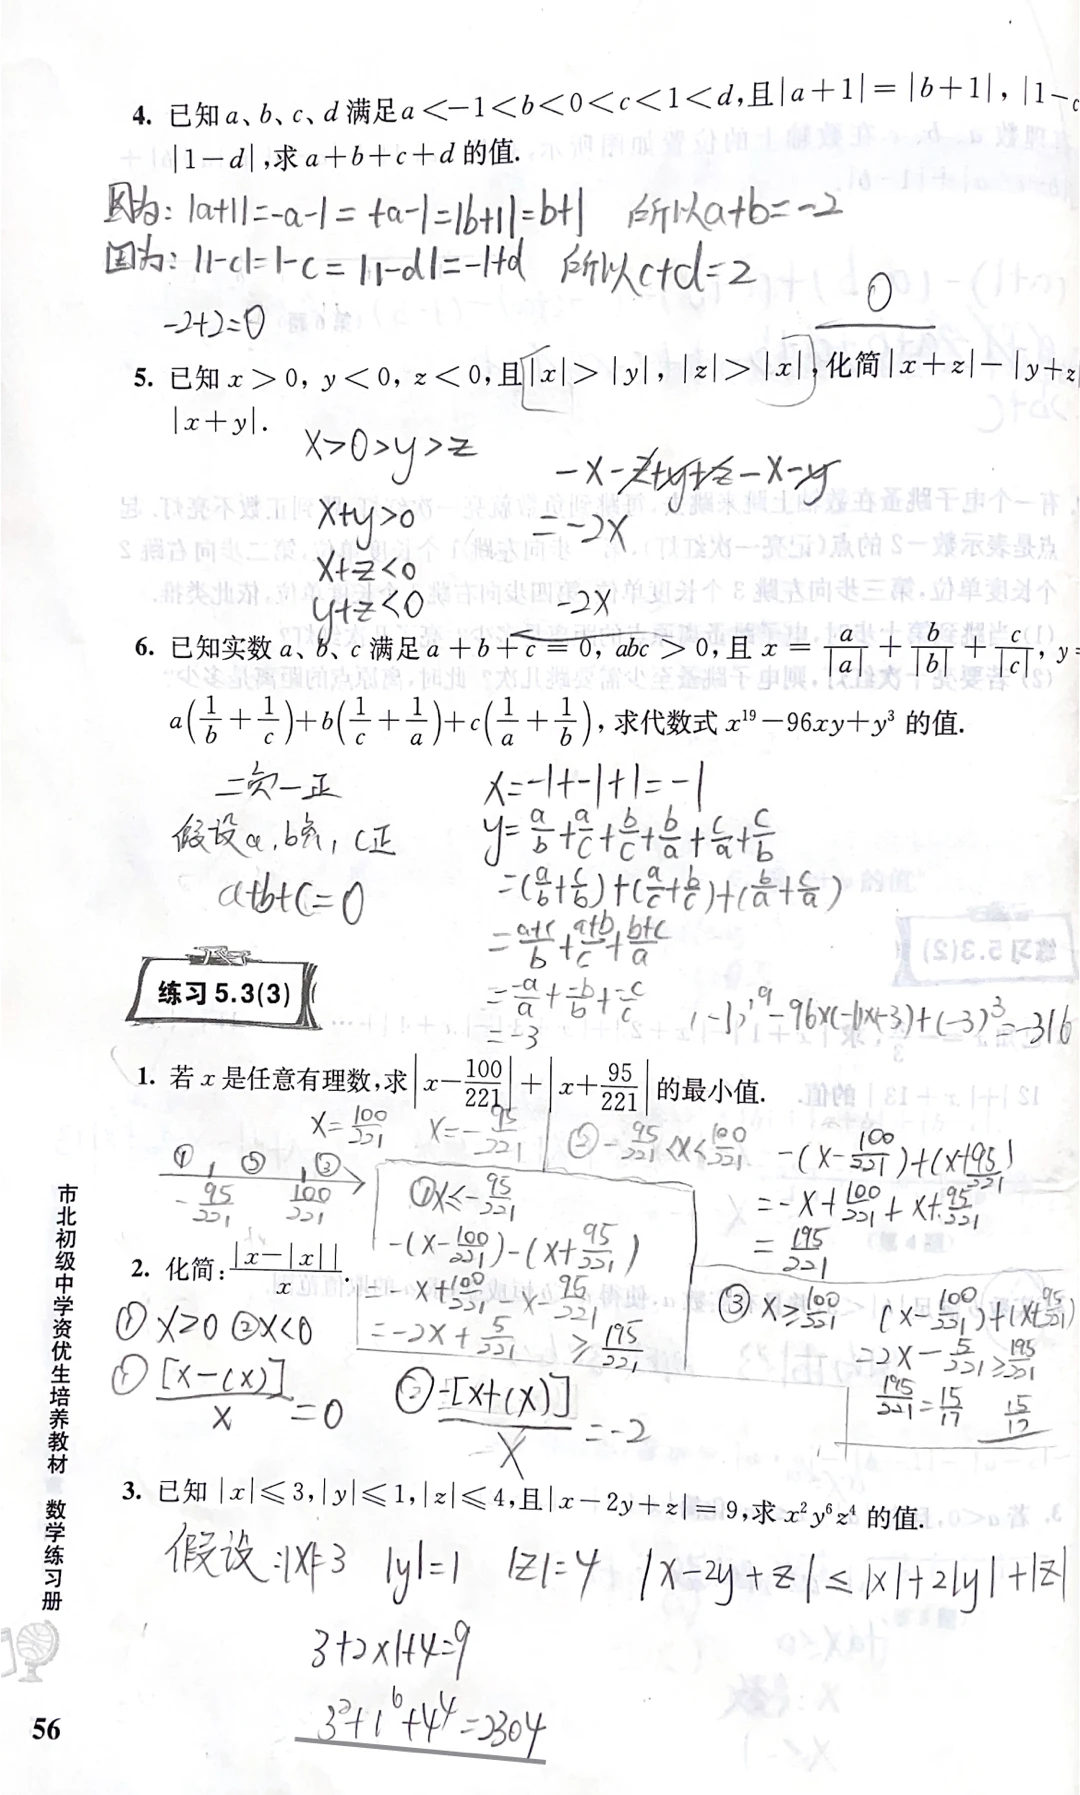 4. 已知a、b、c、d满足a<-1<b<0<c<1<d,且|a+1|=|b+1|,|1-c
|1-d|,求a+b+c+d的值.
因为:|a+1|=-a-1=+a-1=|b+1|=b+1 所以a+b=-2
因为:|1-c|=1-c=|1-d|=-1+d 所以c+d=2
0
-2+2=0
5. 已知x>0,y<0,z<0,且|x|>|y|,|z|>|x|,化简|x+z|-|y+z|
|x+y|.
x>0>y>z
-x-z+y+z-x-y
x+y>0
=-2x
x+z<0
y+z<0
-2x
6. 已知实数a、b、c满足a+b+c=0,abc>0,且x=a/|a|+b/|b|+c/|c|,y=
a(1/b+1/c)+b(1/c+1/a)+c(1/a+1/b),求代数式x¹⁹-96xy+y³的值.
二负一正
x=-1+-1+1=-1
假设a,b负,c正
y=a/b+a/c+b/c+b/a+c/a+c/b
a+b+c=0
=(a/b+c/b)+(a/c+b/c)+(b/a+c/a)
=a+c/b+a+b/c+b+c/a
=-a/a+-b/b+-c/c
=-3
(-1)¹⁹-96×(-1)×(-3)+(-3)³=-316
练习5.3(3)
1. 若x是任意有理数,求|x-100/221|+|x+95/221|的最小值.
x=100/221 x=-95/221
① ② ③
-95/221 100/221
①x≤-95/221
-(x-100/221)-(x+95/221)
=-x+100/221-x-95/221
=-2x+5/221≥195/221
②-95/221<x<100/221
-(x-100/221)+(x+95/221)
=-x+100/221+x+95/221
=195/221
③x≥100/221 (x-100/221)+(x+95/221)
=2x-5/221≥195/221
195/221=15/17 15/17
2. 化简:|x-|x||/x.
①x>0 ②x<0
①[x-(x)]/x=0 ②-[x+(x)]/x=-2
3. 已知|x|≤3,|y|≤1,|z|≤4,且|x-2y+z|=9,求x²y⁶z⁴的值.
假设:|x|=3 |y|=1 |z|=4 |x-2y+z|≤|x|+2|y|+|z|
3+2×1+4=9
3²+1⁶+4⁴=2304
市北初级中学资优生培养教材 数学练习册
56